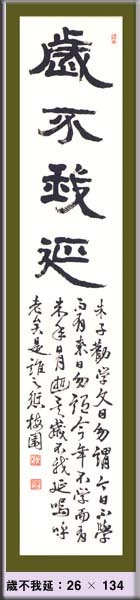 歲不我延
朱子勸学文曰勿謂今日不學
而有来日勿謂今年不学而有
来年日月逝矣歳不我延嗚呼
老矣是誰之愆梅園
歲不我延：26 × 134